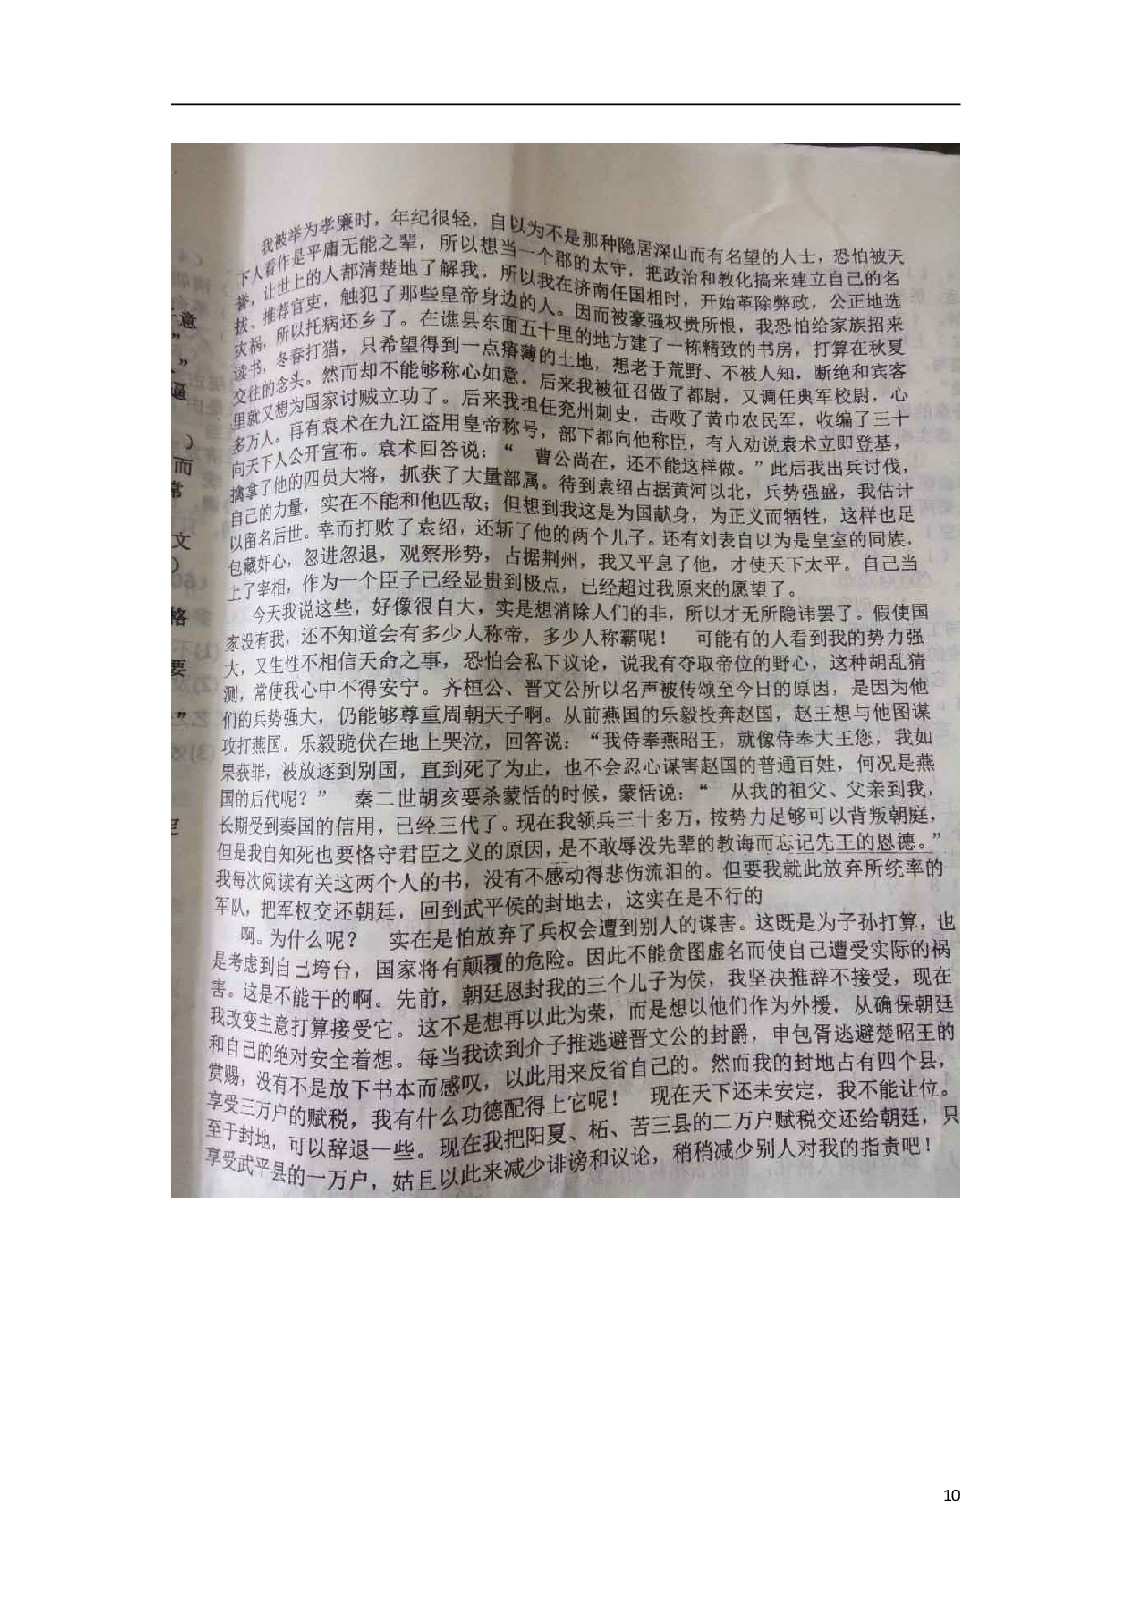 我被举为孝廉时，年纪很轻，自以为不是那种隐居深山而有名望的人士，恐怕被天
下人看作是平庸无能之辈，所以想当一个郡的太守，把政治和教化搞来建立自己的名
誉，让世上的人都清楚地了解我。所以我在济南任国相时，开始革除弊政，公正地选
拔、推荐官吏，触犯了那些皇帝身边的人。因而被豪强权贵所恨，我恐怕给家族招来
灾祸，所以托病还乡了。在谯县东面五十里的地方建了一栋精致的书房，打算在秋夏
读书，冬春打猎，只希望得到一点瘠薄的土地，想老于荒野、不被人知，断绝和宾客
交往的念头。然而却不能够称心如意。后来我被征召做了都尉，又调任典军校尉，心
里就又想为国家讨贼立功了。后来我担任兖州刺史，击败了黄巾农民军，收编了三十
多万人。再有袁术在九江盗用皇帝称号，部下都向他称臣，有人劝说袁术立即登基，
向天下人公开宣布。袁术回答说：“ 曹公尚在，还不能这样做。”此后我出兵讨伐，
擒拿了他的四员大将，抓获了大量部属。待到袁绍占据黄河以北，兵势强盛，我估计
自己的力量，实在不能和他匹敌；但想到我这是为国献身，为正义而牺牲，这样也足
以留名后世。幸而打败了袁绍，还斩了他的两个儿子。还有刘表自以为是皇室的同族，
包藏奸心，忽进忽退，观察形势，占据荆州，我又平息了他，才使天下太平。自己当
上了宰相，作为一个臣子已经显贵到极点，已经超过我原来的愿望了。
今天我说这些，好像很自大，实是想消除人们的非，所以才无所隐讳罢了。假使国
家没有我，还不知道会有多少人称帝，多少人称霸呢！ 可能有的人看到我的势力强
大，又生性不相信天命之事，恐怕会私下议论，说我有夺取帝位的野心，这种胡乱猜
测，常使我心中不得安宁。齐桓公、晋文公所以名声被传颂至今日的原因，是因为他
们的兵势强大，仍能够尊重周朝天子啊。从前燕国的乐毅投奔赵国，赵王想与他图谋
攻打燕国。乐毅跪伏在地上哭泣，回答说：“我侍奉燕昭王，就像侍奉大王您，我如
果获罪，被放逐到别国，直到死了为止，也不会忍心谋害赵国的普通百姓，何况是燕
国的后代呢？” 秦二世胡亥要杀蒙恬的时候，蒙恬说：“ 从我的祖父、父亲到我，
长期受到秦国的信用，已经三代了。现在我领兵三十多万，按势力足够可以背叛朝庭，
但是我自知死也要恪守君臣之义的原因，是不敢辱没先辈的教诲而忘记先王的恩德。”
我每次阅读有关这两个人的书，没有不感动得悲伤流泪的。但要我就此放弃所统率的
军队，把军权交还朝廷，回到武平侯的封地去，这实在是不行的
啊。为什么呢？ 实在是怕放弃了兵权会遭到别人的谋害。这既是为子孙打算，也
是考虑到自己垮台，国家将有颠覆的危险。因此不能贪图虚名而使自己遭受实际的祸
害。这是不能干的啊。先前，朝廷恩封我的三个儿子为侯，我坚决推辞不接受，现在
我改变主意打算接受它。这不是想再以此为荣，而是想以他们作为外援，从确保朝廷
和自己的绝对安全着想。每当我读到介子推逃避晋文公的封爵，申包胥逃避楚昭王的
赏赐，没有不是放下书本而感叹，以此用来反省自己的。然而我的封地占有四个县，
享受三万户的赋税，我有什么功德配得上它呢！ 现在天下还未安定，我不能让位。
至于封地，可以辞退一些。现在我把阳夏、柘、苦三县的二万户赋税交还给朝廷，只
享受武平县的一万户，姑且以此来减少诽谤和议论，稍稍减少别人对我的指责吧！
10